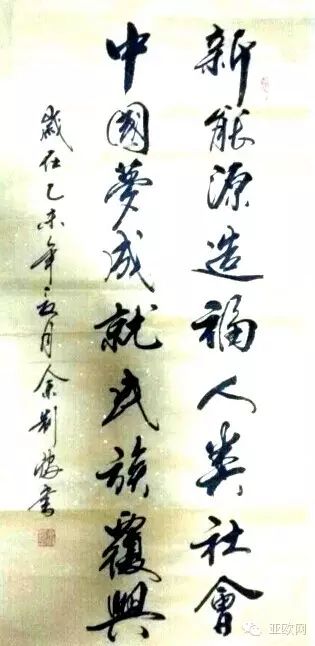 新能源造福人類社會
中國夢成就民族覆興
歲在乙未年 月余 書
亚欧网